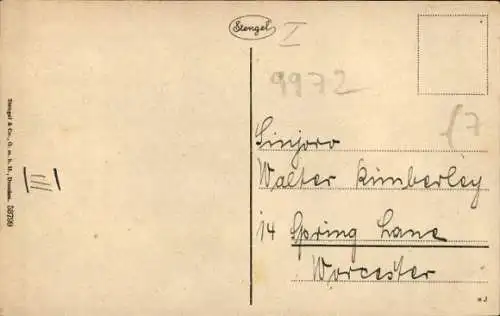 Stengel
I
9972
17
Stengel & Co., G. m. b. H., Dresden.
III
Sinjoro
Walter Kimberley
14 Spring Lane
Worcester